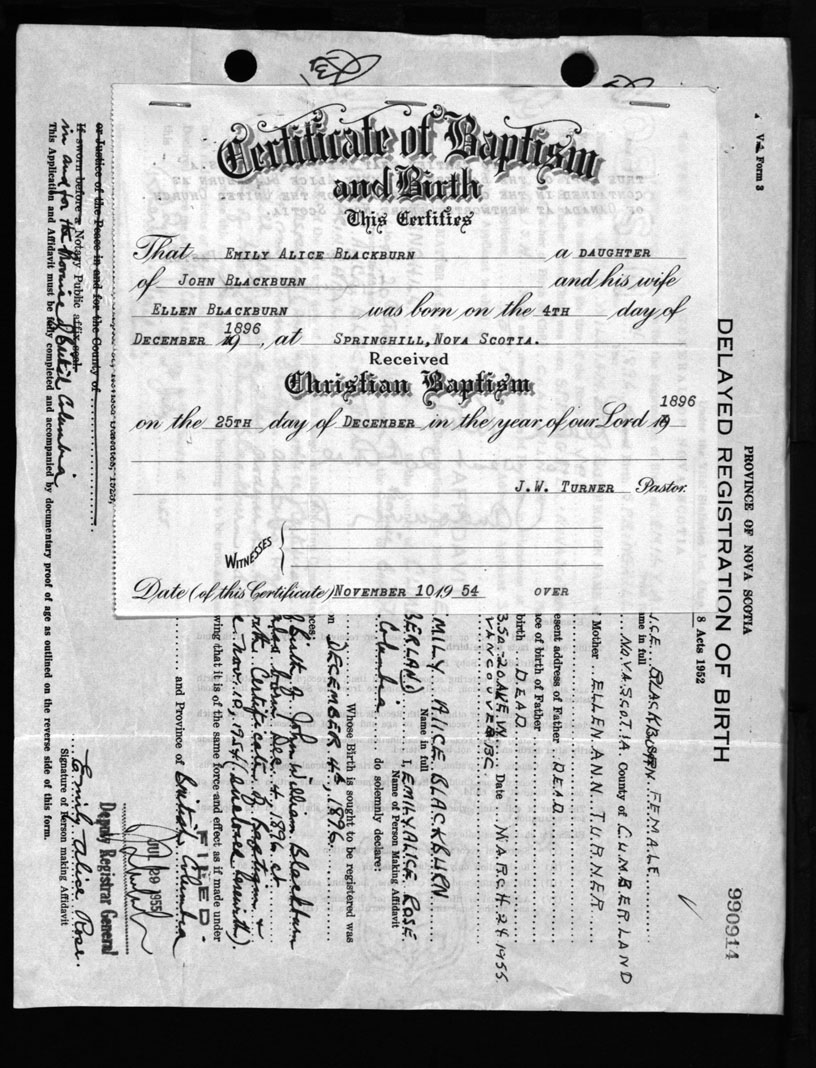 Certificate of Baptism
and Birth
This Certifies
That EMILY ALICE BLACKBURN a DAUGHTER
of JOHN BLACKBURN and his wife
ELLEN BLACKBURN was born on the 4TH day of
DECEMBER 19 1896, at SPRINGHILL, NOVA SCOTIA.
Received
Christian Baptism
on the 25TH day of DECEMBER in the year of our Lord 19 1896
J.W. TURNER Pastor.
WITNESSES
Date (of this Certificate) NOVEMBER 10, 19 54 OVER
Form 3
PROVINCE OF NOVA SCOTIA
DELAYED REGISTRATION OF BIRTH
990914
8 Acts 1952
BLACKBURN FEMALE
ame in full
NOVA SCOTIA County of CUMBERLAND
Mother ELLEN ANN TURNER
esent address of Father DEAD
ace of birth of Father
birth DEAD
20 AVE. W. Date MARCH 24 1955
VANCOUVER BC.
MILY ALICE BLACKBURN
Name in full
BERLAND I, EMILY ALICE ROSE
Name of Person Making Affidavit
Columbia do solemnly declare:
Whose Birth is sought to be registered was
on DECEMBER 4th, 1896.
nces:
birth of John William Blackburn
born Dec. 4, 1896 at
Certificate of Baptism &
Nov. 10, 1954 (enclosed herewith)
wing that it is of the same force and effect as if made under
FILED.
and Province of British Columbia
JUL 20 1955
Deputy Registrar General
Emily Alice Rose.
Signature of Person making Affidavit
or Justice of the Peace in and for the County of
If sworn before a Notary Public affix seal
in and for the Province of British Columbia
This Application and Affidavit must be fully completed and accompanied by documentary proof of age as outlined on the reverse side of this form.